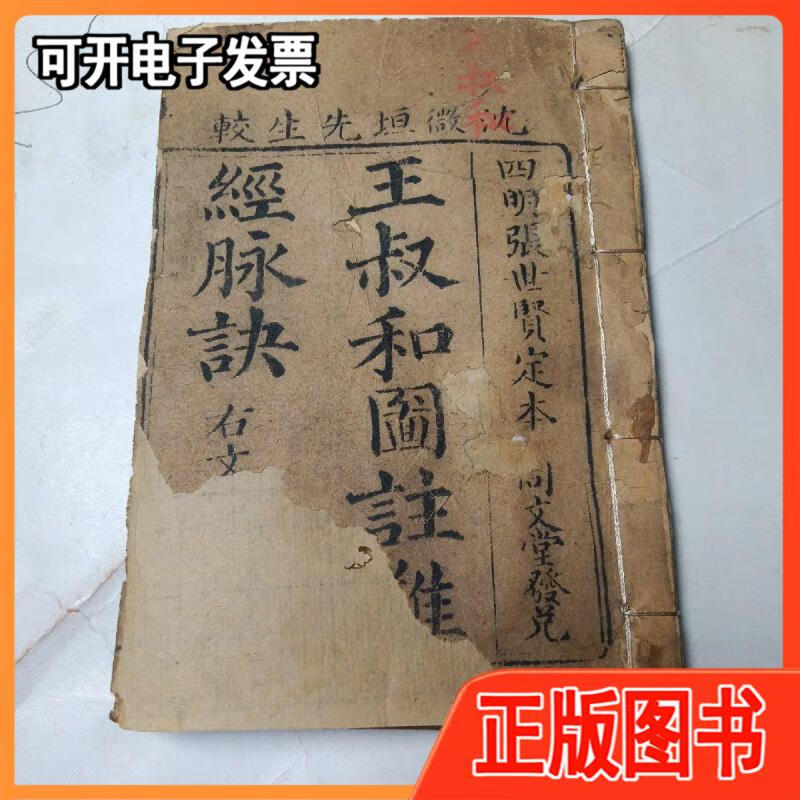 可开电子发票
沈微垣先生較
四明張世賢定本 同文堂發兌
王叔和圖註難
經脉訣 右文
叔和
正版图书